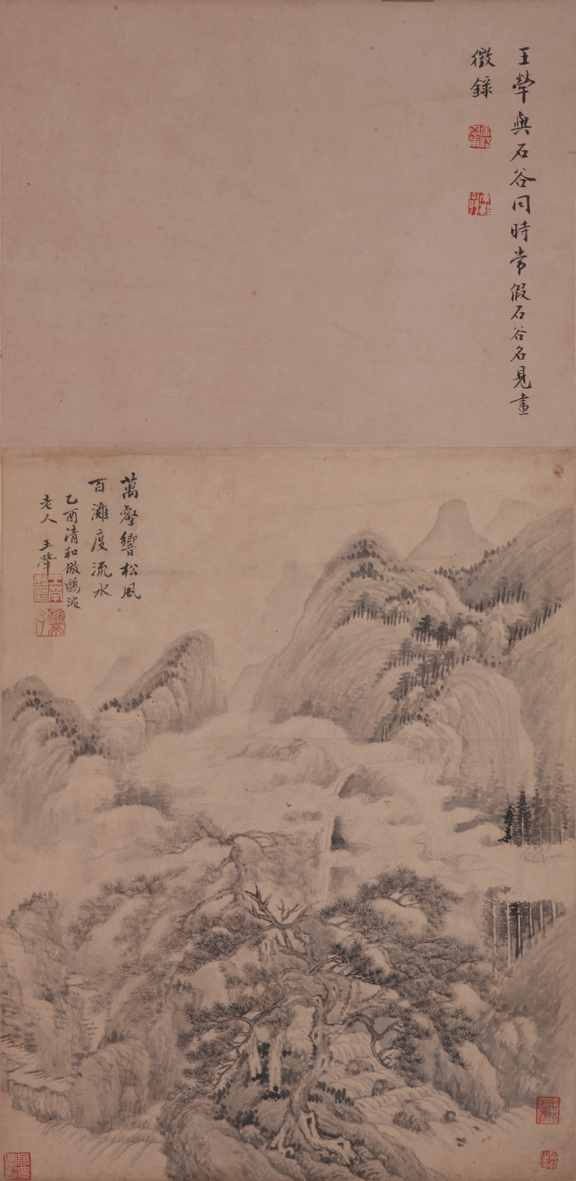 王犖與石谷同時常假石谷名見畫
徵錄
萬壑響松風
百灘度流水
乙酉清和倣鷗波
老人 王犖